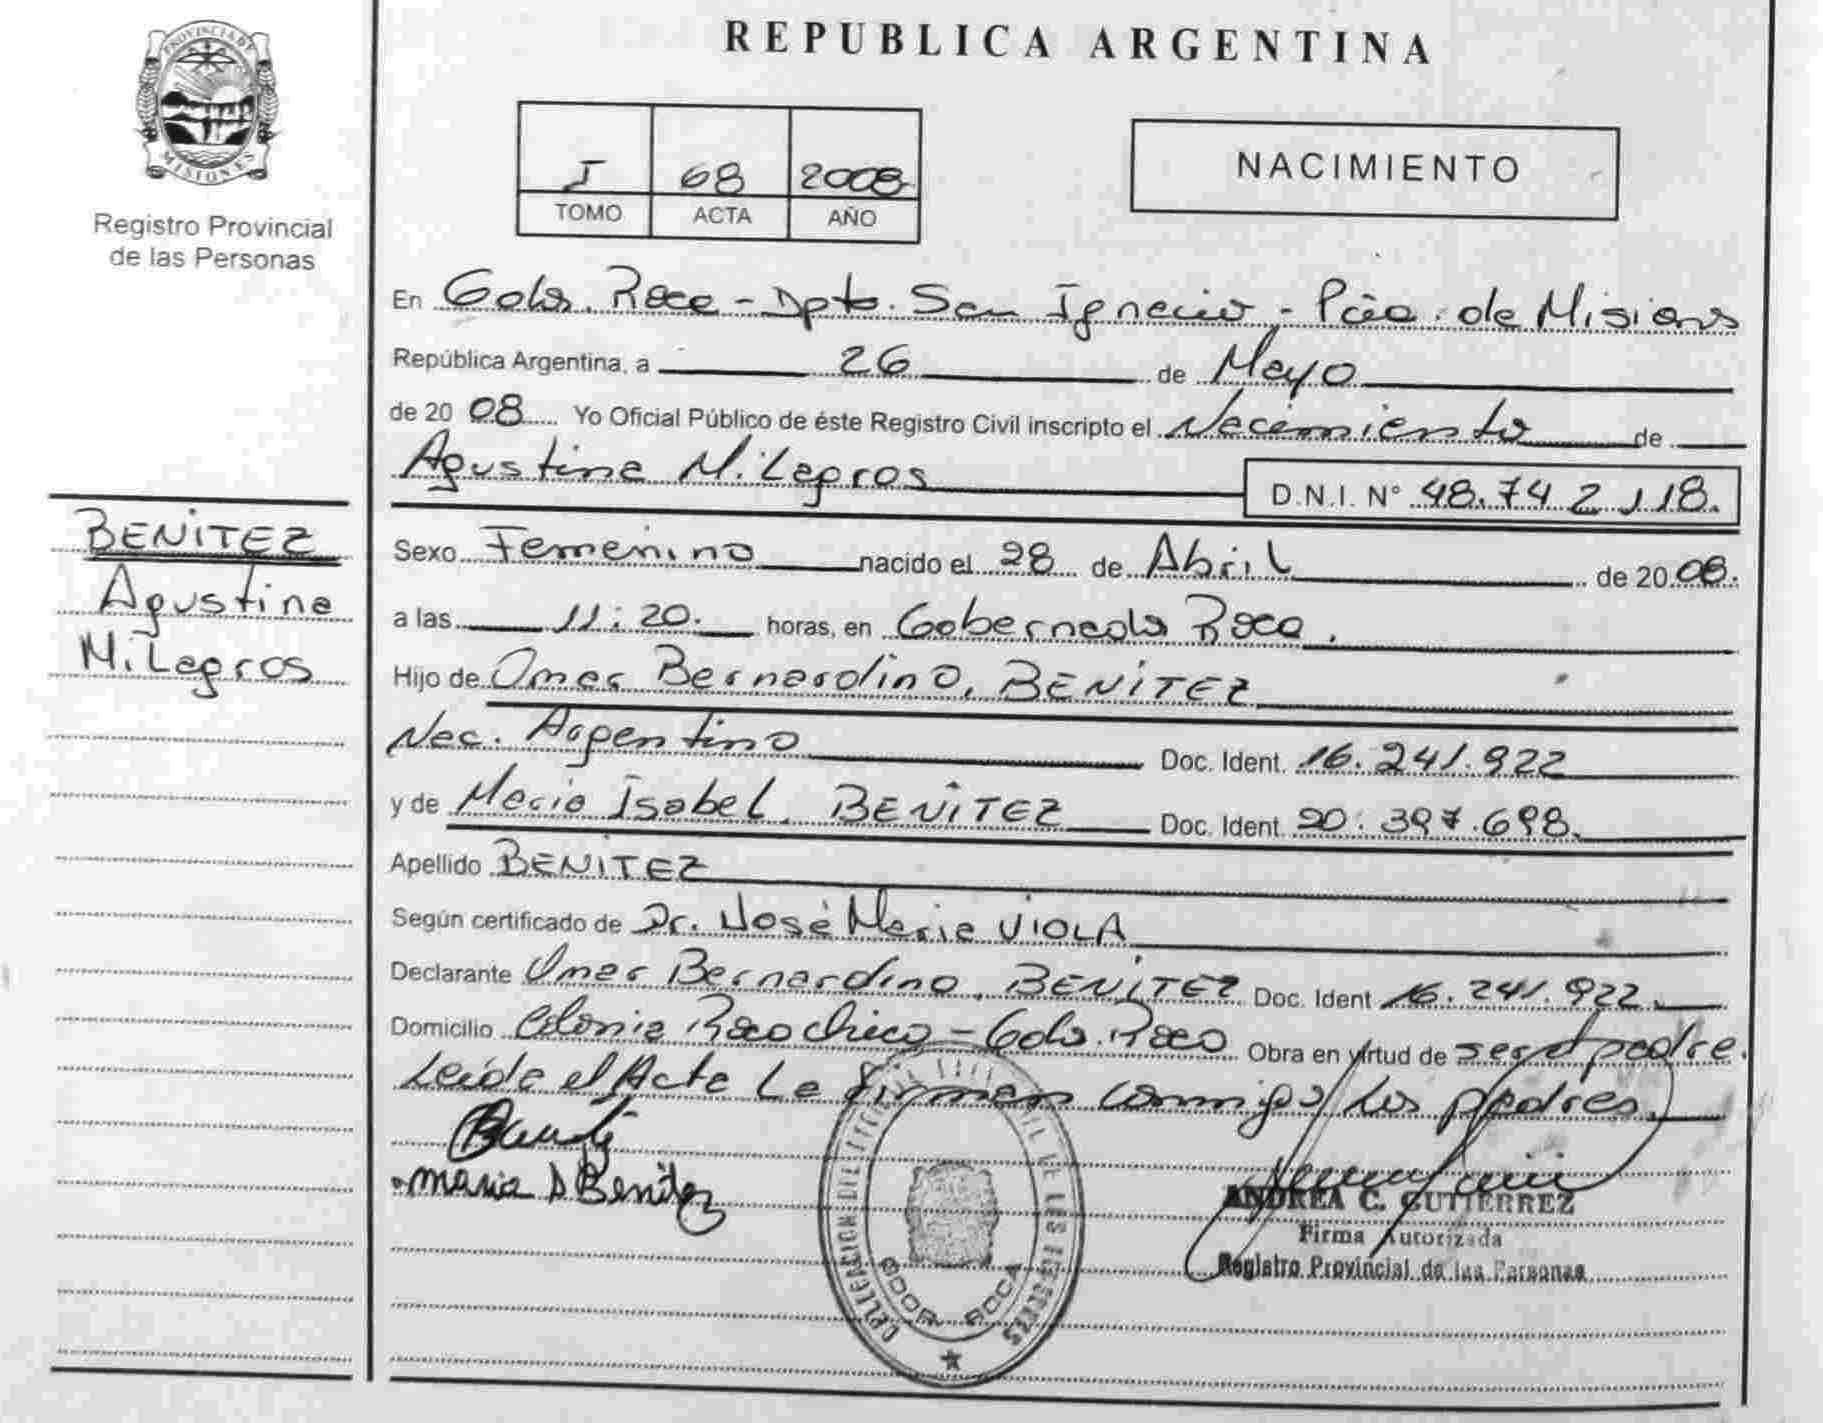 PROVINCIA DE
MISIONES
Registro Provincial
de las Personas
BENITEZ
Agustina
Milagros
REPUBLICA ARGENTINA
I 68 2008
TOMO ACTA AÑO
NACIMIENTO
En Gobr. Roca - Dpto. San Ignacio - Pcia. de Misions
República Argentina, a 26 de Mayo
de 20 08 Yo Oficial Público de éste Registro Civil inscripto el Nacimiento de
Agustina Milagros D.N.I. N° 48.742.118.
Sexo Femenino nacido el 28 de Abril de 20 08.
a las 11:20. horas, en Gobernador Roca.
Hijo de Omar Bernardino, BENITEZ
Nac. Argentino Doc. Ident. 16.241.922
y de Maria Isabel, BENITEZ Doc. Ident. 20.397.698.
Apellido BENITEZ
Según certificado de Dr. José Maria VIOLA
Declarante Omar Bernardino, BENITEZ Doc. Ident 16.241.922
Domicilio Colonia Roca Chica - Gobr. Roca Obra en virtud de ser el padre.
Leida el Acta La Firman conmigo los padres.
maria Benitez
ANDREA C. GUTIERREZ
Firma Autorizada
Registro Provincial de las Personas
GDOR. ROCA